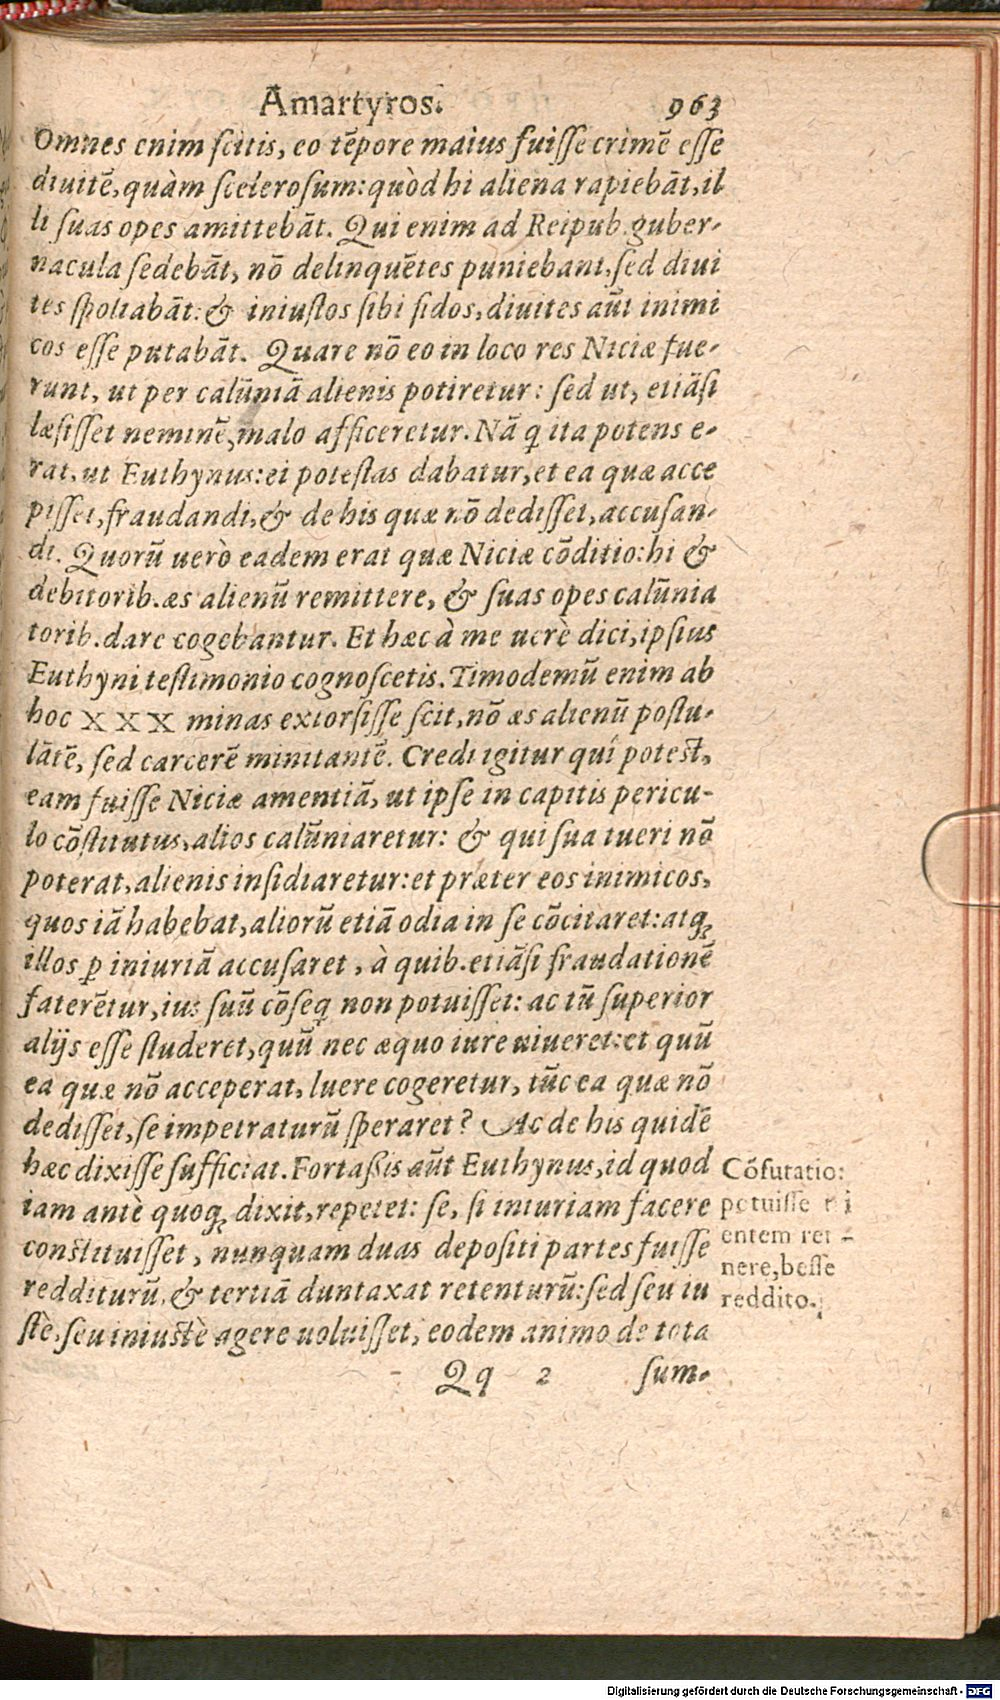 Amartyros. 963
Omnes enim scitis, eo tẽpore maius fuisse crimẽ esse
diuitẽ, quàm scelerosum: quòd hi aliena rapiebãt, il
li suas opes amittebãt. Qui enim ad Reipub. guber-
nacula sedebãt, nõ delinquẽtes puniebant, sed diui
tes spoliabãt: & iniustos sibi fidos, diuites aũt inimi
cos esse putabãt. Quare nõ eo in loco res Niciæ fue-
runt, ut per calũniã alienis potiretur: sed ut, etiãsi
læsisset neminẽ, malo afficeretur. Nã q̃ ita potens e-
rat, ut Euthynus: ei potestas dabatur, et ea quæ acce
pisset, fraudandi, & de his quæ nõ dedisset, accusan-
di. Quorũ uerò eadem erat quæ Niciæ cõditio: hi &
debitorib. æs alienũ remittere, & suas opes calũnia
torib. dare cogebantur. Et hæc à me uerè dici, ipsius
Euthyni testimonio cognoscetis. Timodemũ enim ab
hoc XXX minas extorsisse scit, nõ æs alienũ postu-
lãtẽ, sed carcerẽ minitantẽ. Credi igitur quî potest,
eam fuisse Niciæ amentiã, ut ipse in capitis pericu-
lo cõstitutus, alios calũniaretur: & qui sua tueri nõ
poterat, alienis insidiaretur: et præter eos inimicos,
quos iã habebat, aliorũ etiã odia in se cõcitaret: atq;
illos ꝑ iniuriã accusaret, à quib. etiãsi fraudationẽ
faterẽtur, ius suũ cõseq̃ non potuisset: ac tũ superior
alijs esse studeret, quũ nec æquo iure uiueret: et quũ
ea quæ nõ acceperat, luere cogeretur, tũc ea quæ nõ
dedisset, se impetraturũ speraret? Ac de his quidẽ
hæc dixisse sufficiat. Fortaßis aũt Euthynus, id quod
iam antè quoq; dixit, repetet: se, si iniuriam facere
constituisset, nunquam duas depositi partes fuisse
redditurũ, & tertiã duntaxat retenturũ: sed seu iu
stè, seu iniustè agere uoluisset, eodem animo de tota
Qq 2 sum-
Cõfutatio:
potuisse
entem reti-
nere, besse
reddito.
Digitalisierung gefördert durch die Deutsche Forschungsgemeinschaft - DFG